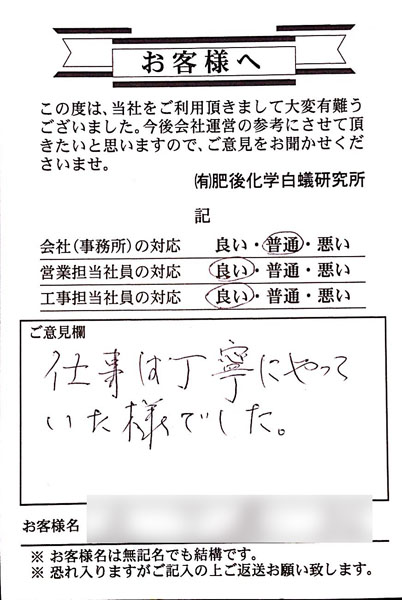 お客様へ
この度は、当社をご利用頂きまして大変有難う
ございました。今後会社運営の参考にさせて頂
きたいと思いますので、ご意見をお聞かせくだ
さいませ。
㈲肥後化学白蟻研究所
記
会社(事務所)の対応 良い・普通・悪い
営業担当社員の対応 良い・普通・悪い
工事担当社員の対応 良い・普通・悪い
ご意見欄
仕事は丁寧にやって
いた様でした。
お客様名
※ お客様名は無記名でも結構です。
※ 恐れ入りますがご記入の上ご返送お願い致します。